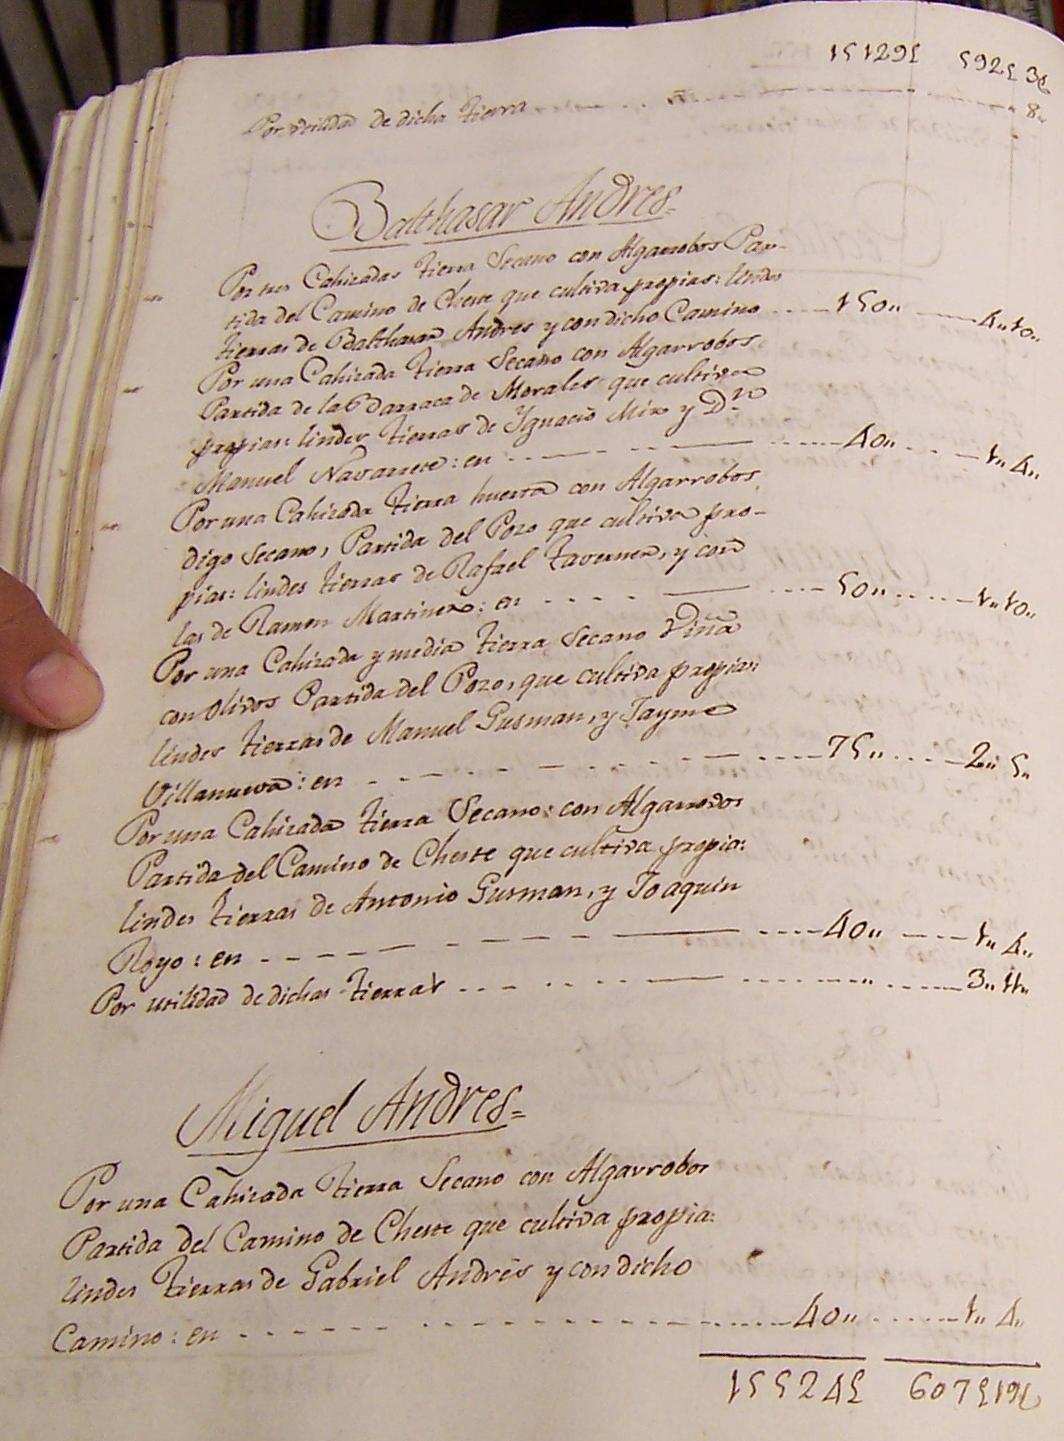 15129£ 592£3
Por utilidad de dicha tierra 8"
Balthasar Andres=
Por tres Cahizadas tierra Secano con Algarrobos Par-
tida del Camino de Cheste que cultiva propias: lindes
tierras de Balthasar Andres y con dicho Camino 150" 4"10"
Por una Cahizada tierra Secano con Algarrobos,
Partida de la Barraca de Morales que cultiva
propias: lindes tierras de Ygnacio Mir y Dn
Manuel Navarrete: en 40" 1"4"
Por una Cahizada tierra huerta con Algarrobos,
digo Secano, Partida del Pozo que cultiva pro-
pias: lindes tierras de Rafael Taverner, y con
las de Ramon Martinez: en 50" 1"10"
Por una Cahizada y media tierra Secano Viña
con olivos Partida del Pozo, que cultiva propias:
lindes tierras de Manuel Gusman, y Jayme
Villanueva: en 75" 2"5"
Por una Cahizada tierra Secano: con Algarrobos
Partida del Camino de Cheste que cultiva propia:
lindes tierras de Antonio Gusman, y Joaquin
Royo: en 40" 1"4"
Por utilidad de dichas tierras 3"11"
Miguel Andres=
Por una Cahizada tierra Secano con Algarrobos
Partida del Camino de Cheste que cultiva propia:
lindes tierras de Gabriel Andrés y con dicho
Camino: en 40" 1"4"
15524£ 607£19